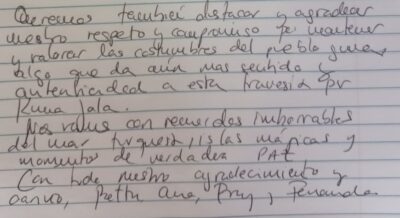 Queremos también destacar y agradecer
nuestro respeto y compromiso de mantener
y valorar las costumbres del pueblo guna,
algo que da aún mas sentido y
autenticidad a esta travesía por
Kuna Yala.
Nos vamos con recuerdos imborrables
del mar turquesa, islas mágicas y
momentos de verdadera PAZ
Con todo nuestro agradecimiento y
cariño, Ana, y Fernanda